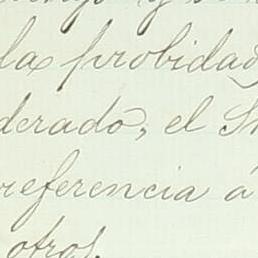 la probidad
derado, el S
referencia á
otros.